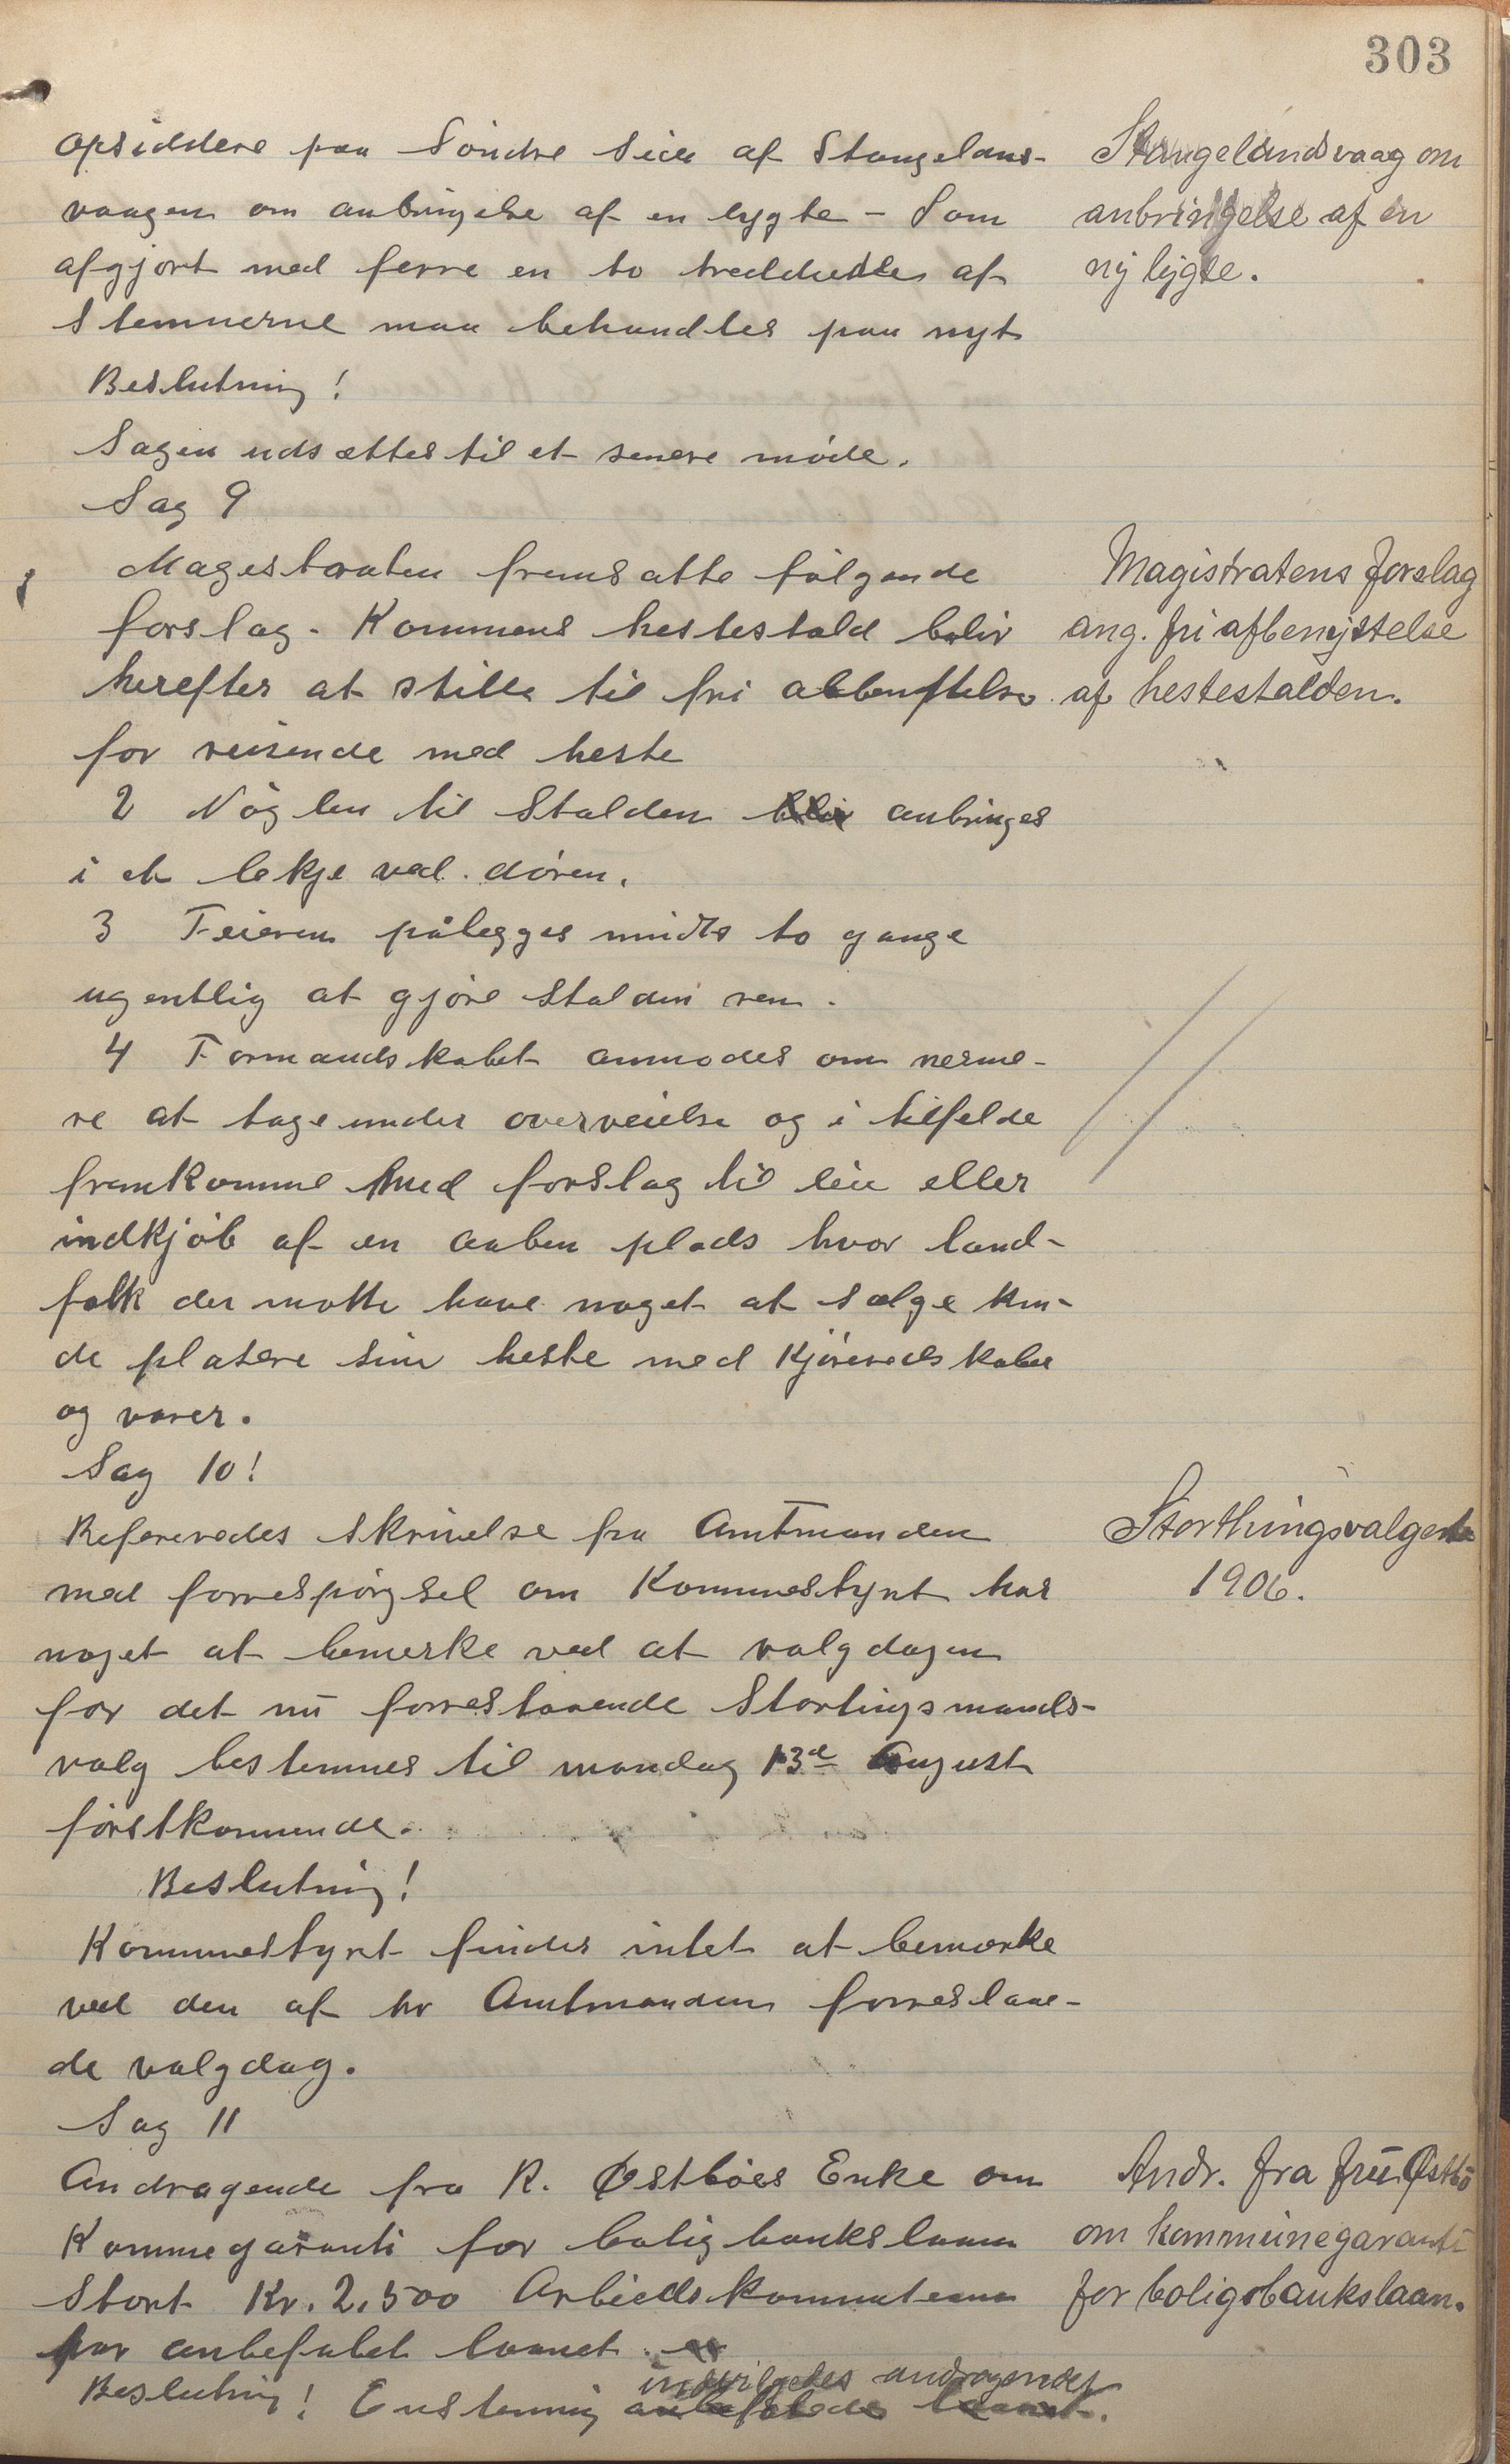 303
opsiddere paa Söndre Side af Stangelans-
vaagen om anbringelse af en lygte - Som
afgjort med ferre en to treddedele af
Stemmerne maa behandles paa nyt
Beslutning!
Sagen udsættes til et senere möde.
Sag 9
Magestraten fremsatte fölgende
forslag. Kommens hestestald bliv
herefter at stille til fri
for reisende med heste
2 Nöglen til Stalden anbringes
i et lekje ved dören.
3 Feieren pålegges midts to gange
ugentlig at gjöre Stalden ren.
4 Formandskabet anmodes om nerme-
re at tage under overveielse og i tilfelde
fremkomme med forslag til leie eller
indkjöb af en aaben plads hvor land-
folk der motte have noget at sælge kun-
de plasere sine heste med Kjöreredskaber
og varer.
Sag 10!
Refereredes Skrivelse fra Amtmanden
med forrespörgsel om Kommestyret har
noget at bemerke ved at valgdagen
for det nu forrestaaende Stortingsmands-
valg bestemmes til mandag 13d August
förstkommende.
Beslutning!
Kommestyret finder intet at bemærke
ved den af hr Amtmanden forreslaae-
de valgdag.
Sag 11
Andragende fra R. Østböes Enke om
Kommegaranti for boligbankslaan
Stort Kr. 2.500 Arbieds
har anbefalet laanet
indvilgedes andragendet
Beslutning! Enstemmig anbefaledes laanet.
Stangelandsvaag om
anbringelse af en
ny lygte.
Magistratens forslag
ang. fri afbenyttelse
af hestestalden.
Storthingsvalgene
1906.
Andr. fra fru Østbö
om kommunegaranti
for boligsbankslaan.